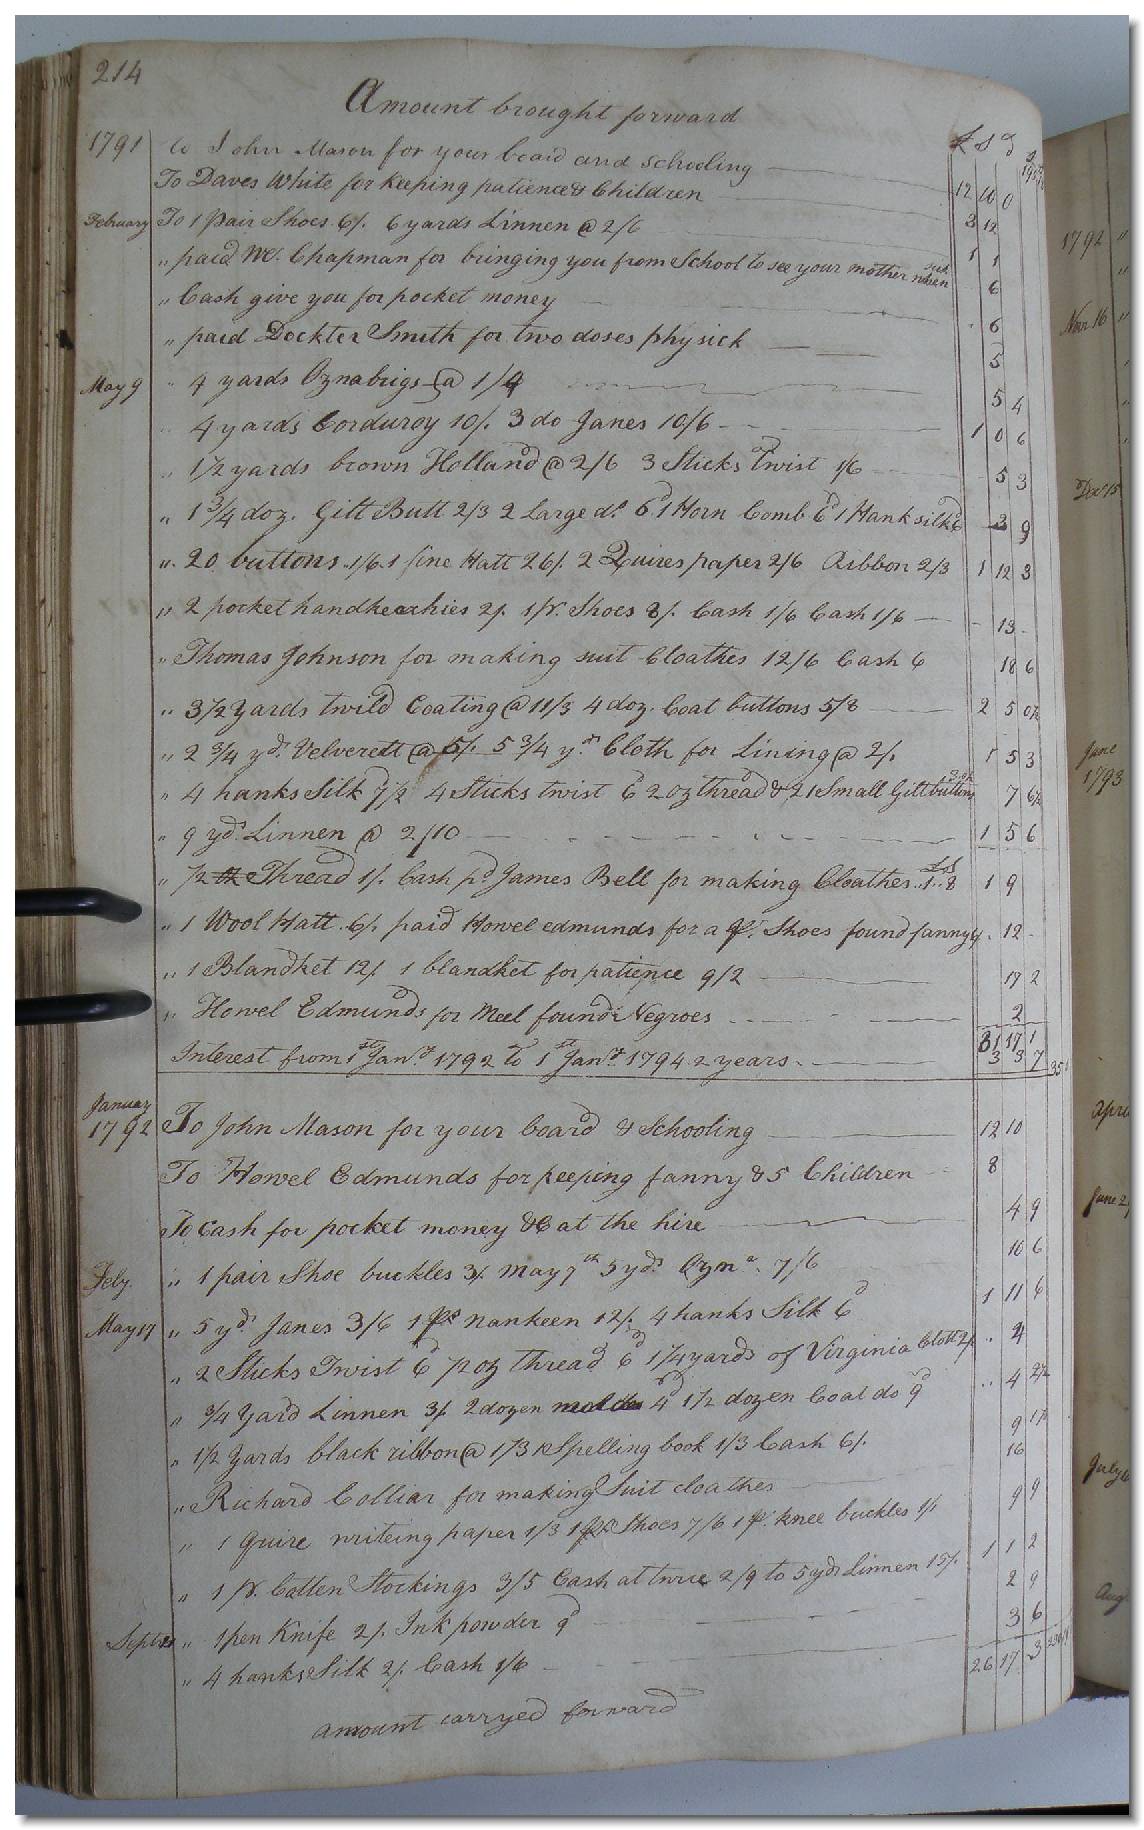 214
Amount brought forward
£ S d
1791 to John Mason for your board and schooling 12 10 0
To Daves White for keeping patience & Children 3 12
February To 1 pair Shoes 6/. 6 yards Linnen @ 2/6 1 1
" paid Wm. Chapman for bringing you from School to see your mother when sick 6
" Cash give you for pocket money 6
" paid Dockter Smith for two doses physick 5
May 9 " 4 yards Oznabrigs @ 1/4 5 4
4 yards Corduroy 10/. 3 do Janes 10/6 1 0 6
" 1 1/2 yards brown Holland @ 2/6 3 Sticks Twist 1/6 5 3
" 1 3/4 doz. Gilt Butt 2/3 2 Large do. 6d 1 Horn Comb 6d 1 Hank silk 6d 3 9
" 20 buttons 1/6. 1 fine Hatt 26/. 2 Quires paper 2/6 Ribbon 2/3 1 12 3
" 2 pocket handkecahies 2/. 1 pr. Shoes 8/. Cash 1/6 Cash 1/6 13
" Thomas Johnson for making suit Cloathes 12/6 Cash 6 18 6
" 3 1/2 yards twild Coating @ 11/3 4 doz. Coat buttons 5/8 2 5 0 1/2
" 2 3/4 yds. Velverett @ 5/. 5 3/4 yds. Cloth for Lining @ 2/. 1 5 3
" 4 hanks Silk 7 1/2 4 Sticks twist 6d 2 oz thread & 21 Small Gilt buttons 7 6 1/2
" 9 yds. Linnen @ 2/10 1 5 6
" 1/2 Thread 1/. Cash pd James Bell for making Cloathes. £1.. S8 1 9
" 1 Wool Hatt 6/. paid Howel edmunds for a pr. Shoes found fanny 12
" 1 Blandket 12/. 1 blandket for patience 9/2 17 2
" Howel Edmunds for Meel found Negroes 2
31 17 1
Interest from 1st Jany. 1792 to 1st Jany. 1794 2 years 3 3 7
January 1792 To John Mason for your board & Schooling 12 10
To Howel Edmunds for keeping fanny & 5 Children 8
To Cash for pocket money &C at the hire 4 9
Feby. " 1 pair Shoe buckles 3/. May 7th 5 yds. Ozns. 7/6 10 6
May 17 " 5 yds. Janes 3/6 1 ps nankeen 12/. 4 hanks Silk 6d 1 11 6
" 2 Sticks Twist 6d 1/2 oz thread 6d 1 1/4 yards of Virginia Cloth 2/. 4
" 3/4 Yard Linnen 3/. 2 dozen 4d 1 1/2 dozen Coat do 9d 4 2 1/2
" 1 1/2 yards black ribbon @ 1/3 Spelling book 1/3 Cash 6/. 9 1 1/2
" Richard Colliar for making Suit cloathes 16
" 1 quire writeing paper 1/3 1 pr. Shoes 7/6 1 pr. knee buckles 1/. 9 9
" 1 pr. Cotten Stockings 3/5 Cash at twice 2/9 to 5 yds Linnen 15/. 1 1 2
Septr " 1 pen Knife 2/. Ink powder 9d 2 9
" 4 hanks Silk 2/. Cash 1/6 3 6
26 17 3
amount carryed forward
1792
Novr 16
Decr 15
June 1793
Apri
June 2
July
Aug